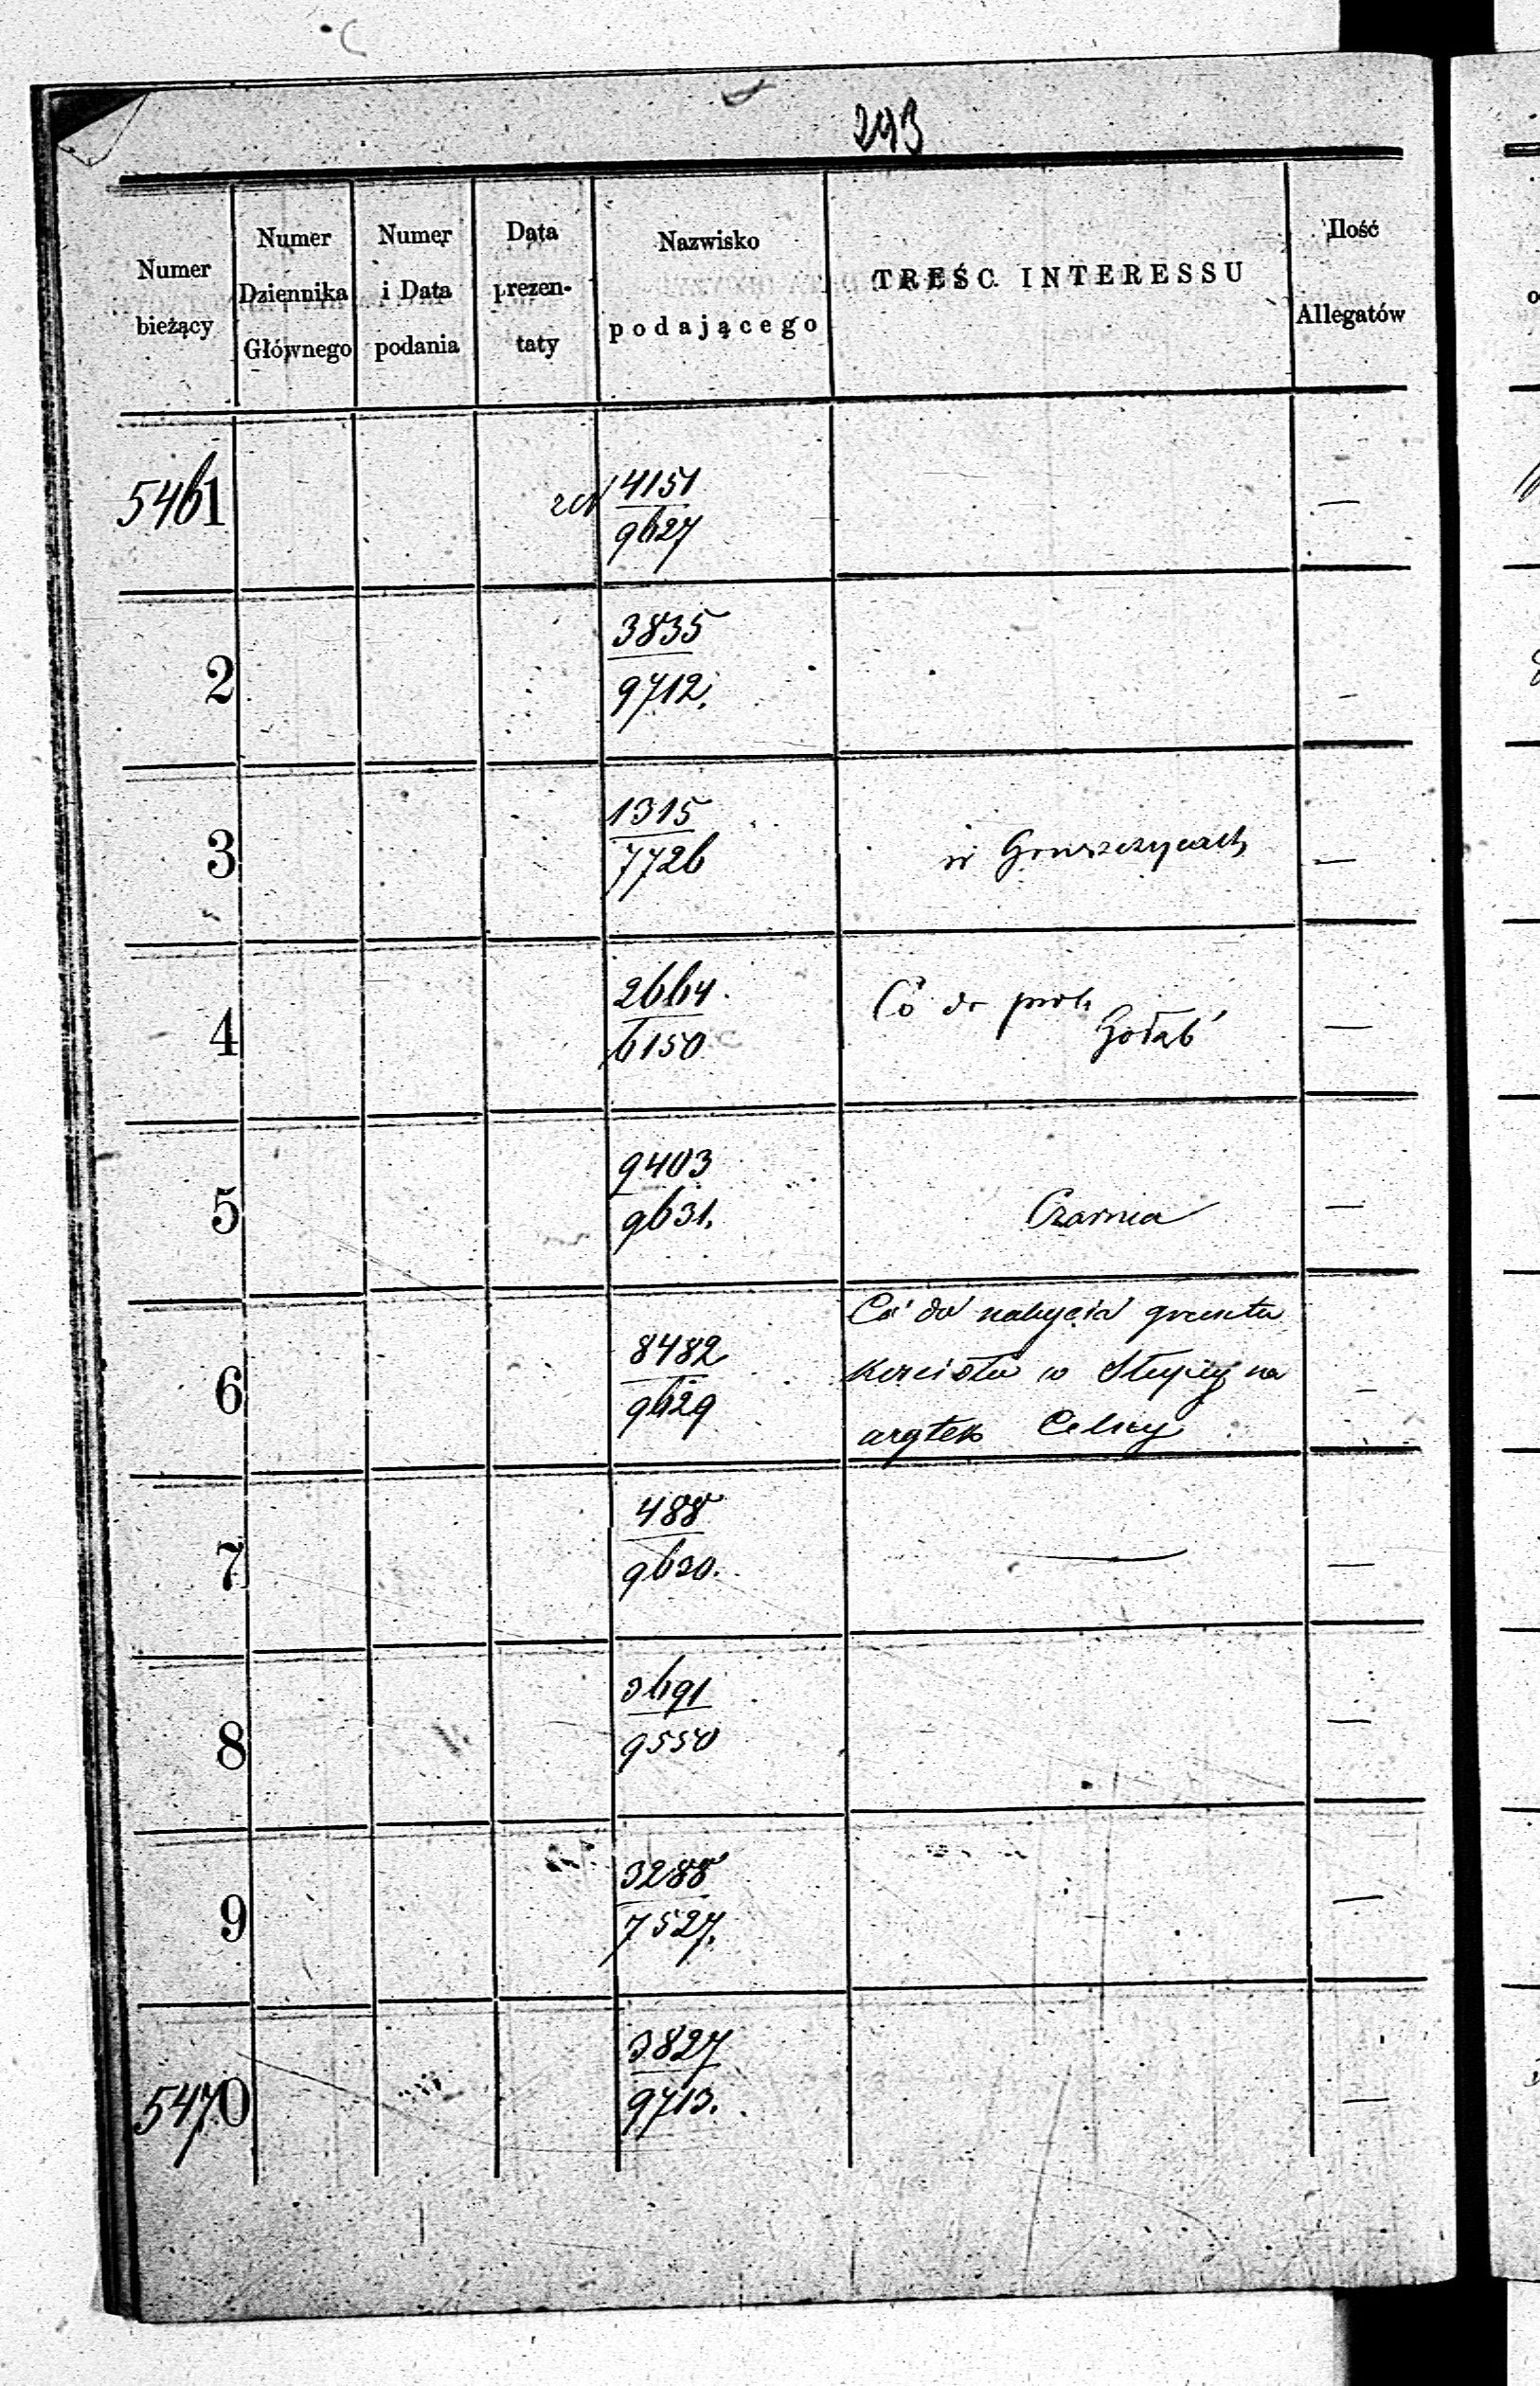 243
Numer
bieżący
Numer
Dziennika
Głównego
Numer
i Data
podania
Data
prezen-
taty
Nazwisko
podającego
TREŚC INTERESSU
Ilość
Allegatów
5461
4151
9627
—
2
3835
9712.
—
3
1315
7726
w Gruszczycach
—
4
2664.
6150
Co do prob.
Gołąb
—
5
9403
9631.
Czarnia
—
6
8482
9629
Co do nabycia gruntu
kościoła w Słupcy na
Celszy
—
7
488
9630.
—
—
8
3691
9550
—
9
3288
7527.
—
5470
3827
9713.
—